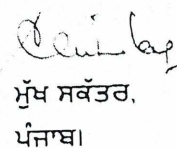 ਮੁੱਖ ਸਕੱਤਰ,
ਪੰਜਾਬ।